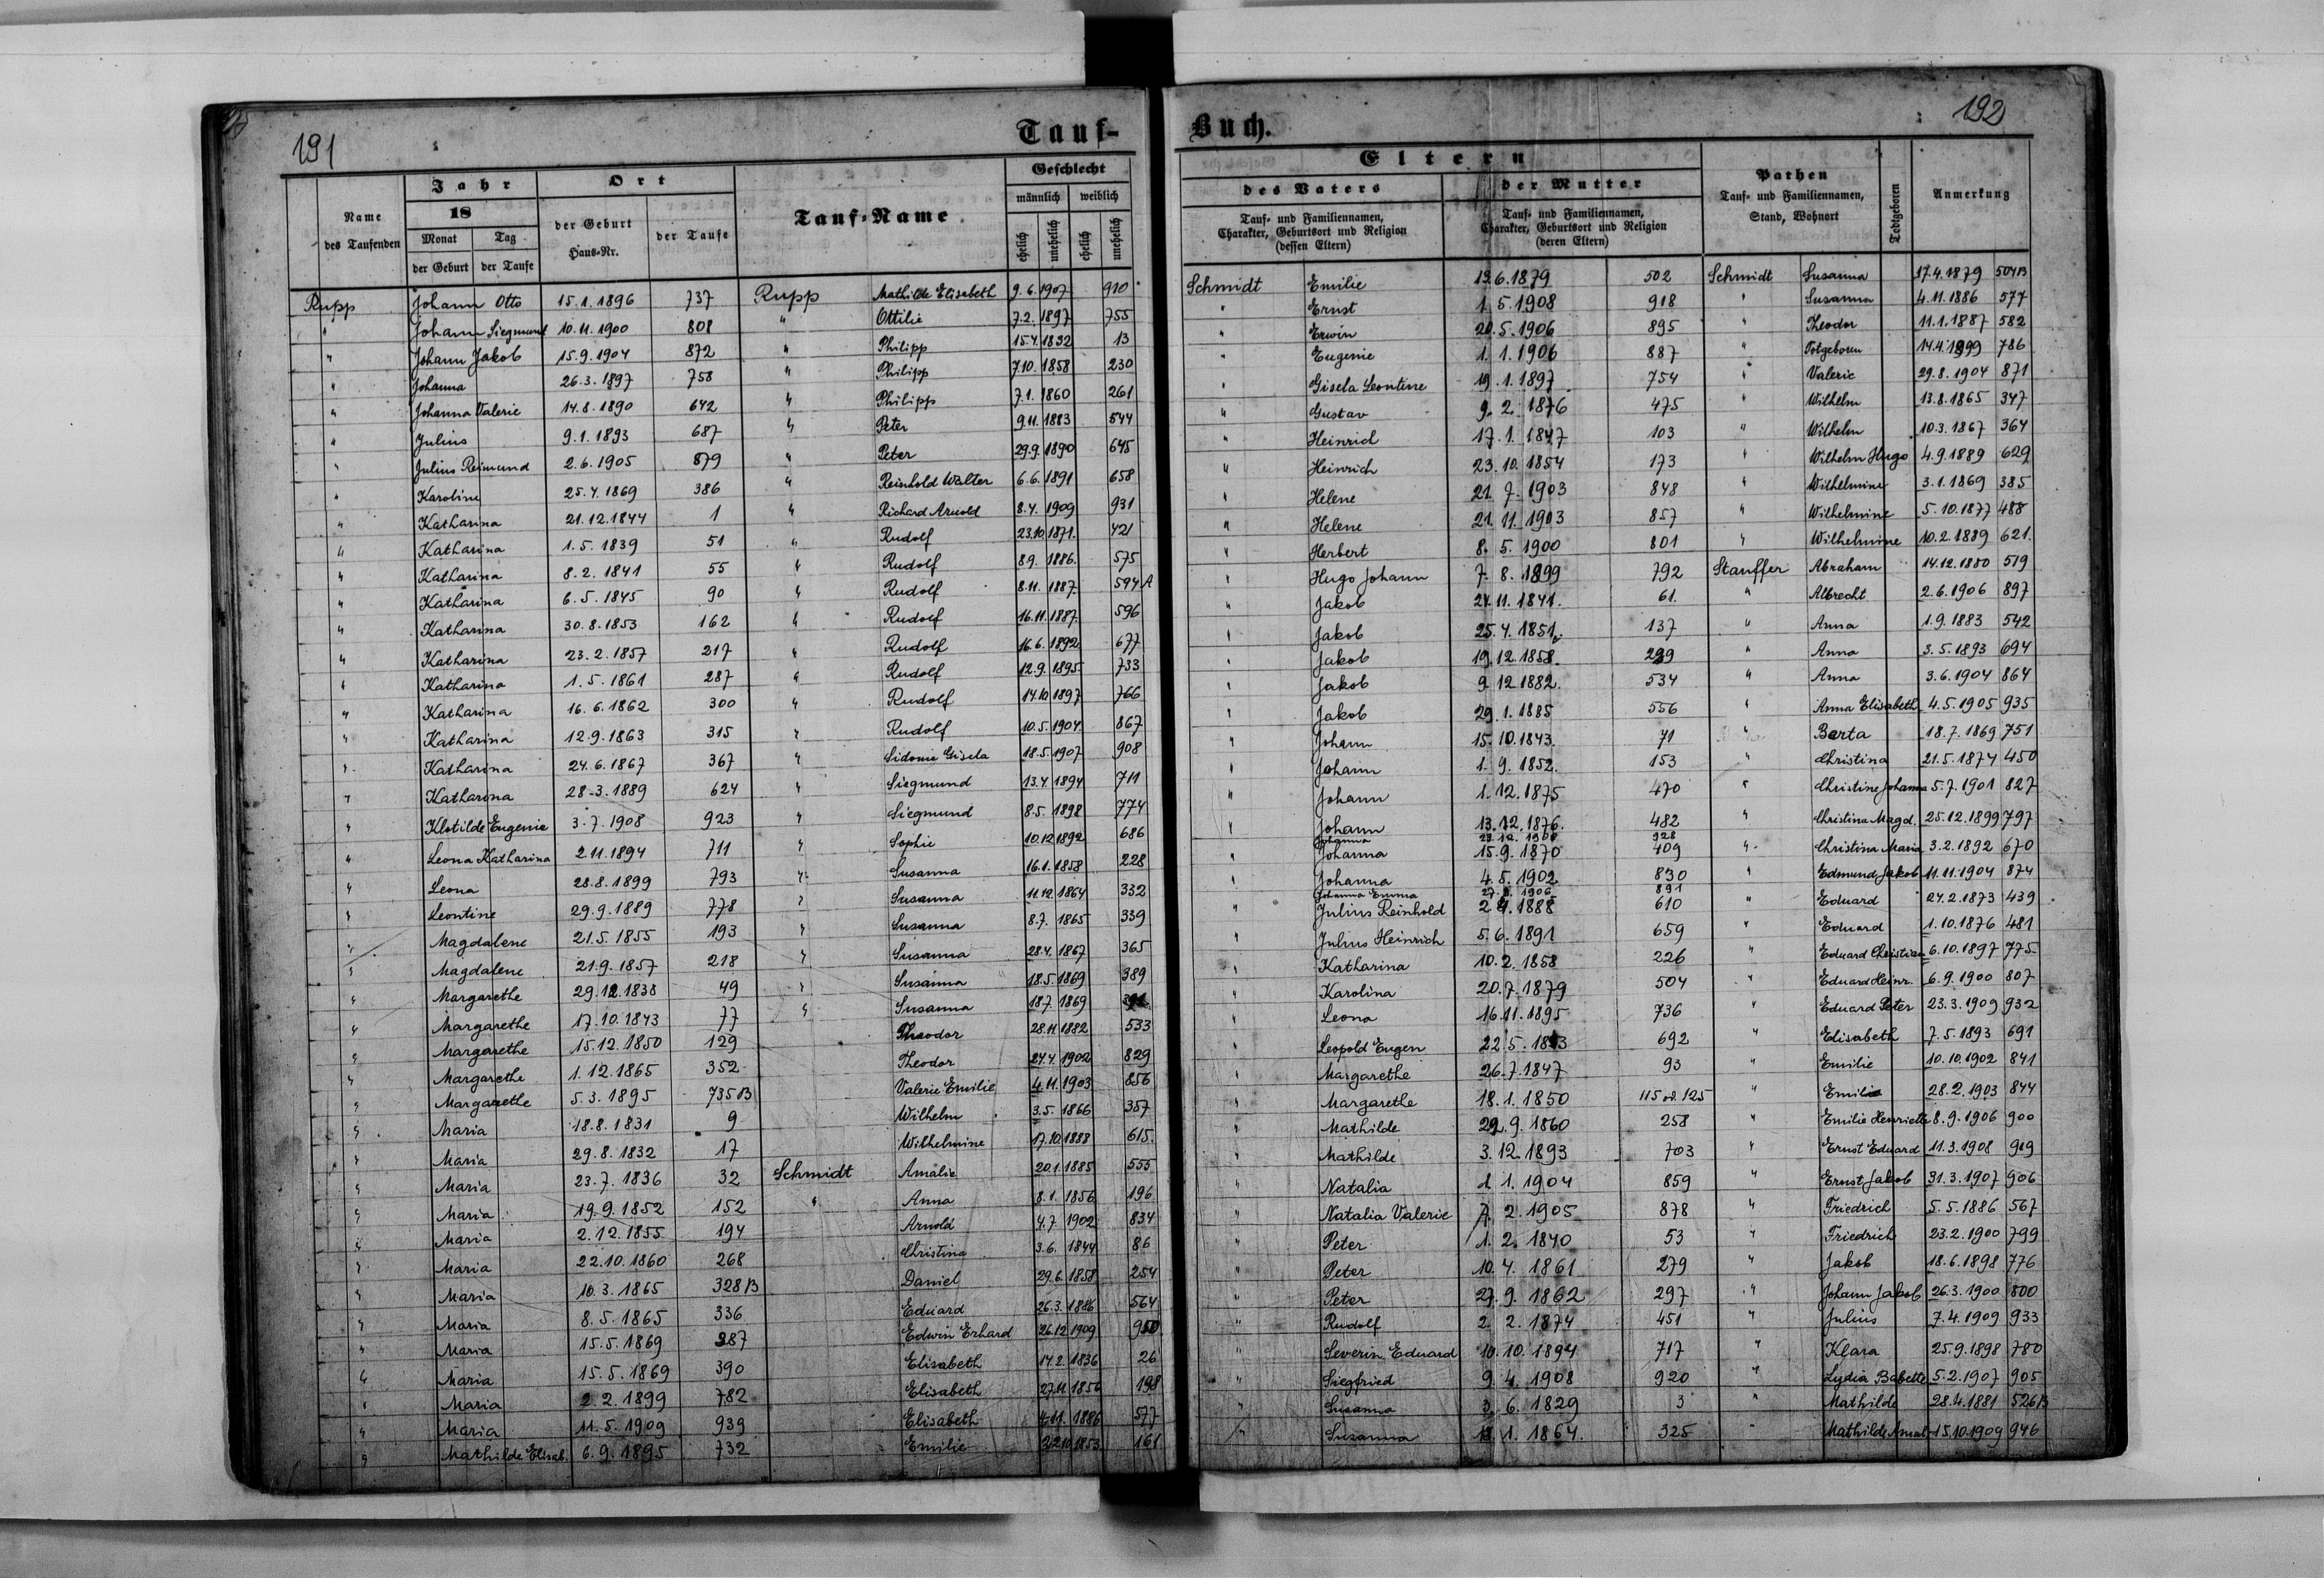 191
Tauf-
Name des Taufenden
Jahr
18
Monat
Tag
der Geburt
der Taufe
Ort
der Geburt
Haus-Nr.
der Taufe
Tauf-Name
Geschlecht
männlich
weiblich
ehelich
unehelich
ehelich
unehelich
Rupp Johann Otto 15.1.1896 737
" Johann Siegmund 10.11.1900 808
" Johann Jakob 15.9.1904 872
" Johanna 26.3.1897 758
" Johanna Valerie 14.8.1890 642
" Julius 9.1.1893 687
" Julius Reimund 2.6.1905 879
" Karoline 25.4.1869 386
" Katharina 21.12.1844 1
" Katharina 1.5.1839 51
" Katharina 8.2.1841 55
" Katharina 6.5.1845 90
" Katharina 30.8.1853 162
" Katharina 23.2.1857 217
" Katharina 1.5.1861 287
" Katharina 16.6.1862 300
" Katharina 12.9.1863 315
" Katharina 24.6.1867 367
" Katharina 28.3.1889 624
" Klotilde Eugenie 3.7.1908 923
" Leona Katharina 2.11.1894 711
" Leona 28.8.1899 793
" Leontine 29.9.1889 778
" Magdalene 21.5.1855 193
" Magdalene 21.9.1857 218
" Margarethe 29.12.1838 49
" Margarethe 17.10.1843 77
" Margarethe 15.12.1850 129
" Margarethe 1.12.1865 352
" Margarethe 5.3.1895 735B
" Maria 18.8.1831 9
" Maria 29.8.1832 17
" Maria 23.7.1836 32
" Maria 19.9.1852 152
" Maria 2.12.1855 194
" Maria 22.10.1860 268
" Maria 10.3.1865 328B
" Maria 8.5.1865 336
" Maria 15.5.1869 387
" Maria 15.5.1869 390
" Maria 2.2.1899 782
" Maria 11.5.1909 939
" Mathilde Elisab. 6.9.1895 732
Rupp Mathilde Elisabeth 9.6.1907 910
" Ottilie 7.2.1897 755
" Philipp 15.4.1832 13
" Philipp 7.10.1858 230
" Philipp 7.1.1860 261
" Peter 9.11.1883 544
" Peter 29.9.1890 645
" Reinhold Walter 6.6.1891 658
" Richard Arnold 8.4.1909 931
" Rudolf 23.10.1871. 421
" Rudolf 8.9.1886. 575
" Rudolf 8.11.1887. 594A
" Rudolf 16.11.1887. 596
" Rudolf 16.6.1892 677
" Rudolf 12.9.1895. 733
" Rudolf 14.10.1897 766
" Rudolf 10.5.1904. 867
" Sidonie Gisela 18.5.1907 908
" Siegmund 13.4.1894 711
" Siegmund 8.5.1898 774
" Sophie 10.12.1892 686
" Susanna 16.1.1858 228
" Susanna 11.12.1864 332
" Susanna 8.7.1865 339
" Susanna 28.4.1867 365
" Susanna 18.5.1869 389
" Susanna 18.7.1869
Theodor 28.11.1882 533
Theodor 24.4.1902 829
Valerie Emilie 4.11.1903 856
Wilhelm 3.5.1866 357
Wilhelmine 17.10.1888 615.
Schmidt Amalie 20.1.1885 555
" Anna 8.1.1856 196
Arnold 4.7.1902 834
Christina 3.6.1844 86
Daniel 29.6.1858 254
Eduard 26.3.1886 564
Edwin Erhard 26.12.1909 950
Elisabeth 14.2.1836 26
Elisabeth 27.11.1856 198
Elisabeth 4.11.1886 577
Emilie 22.10.1853 161
192
Buch.
Eltern
des Vaters
Tauf- und Familiennamen,
Charakter, Geburtsort und Religion
(dessen Eltern)
der Mutter
Tauf- und Familiennamen,
Charakter, Geburtsort und Religion
(deren Eltern)
Pathen
Tauf- und Familiennamen,
Stand, Wohnort
Todtgeboren
Anmerkung
Schmidt Emilie 13.6.1879 502
" Ernst 1.5.1908 918
" Erwin 20.5.1906 895
" Eugenie 1.1.1906 887
" Gisela Leontine 19.1.1897 754
" Gustav 9.2.1876 475
" Heinrich 17.1.1847 103
" Heinrich 23.10.1854 173
" Helene 21.7.1903 848
" Helene 21.11.1903 857
" Herbert 8.5.1900 801
" Hugo Johann 7.8.1899 792
" Jakob 24.11.1841. 61.
" Jakob 25.4.1851. 137
" Jakob 19.12.1858. 239
" Jakob 9.12.1882. 534
" Jakob 29.1.1885 556
" Johann 15.10.1843. 71
" Johann 1.9.1852. 153
" Johann 1.12.1875 470
" Johann 13.12.1876. 482
Johanna 23.12.1908 928
" Johanna 15.9.1870 409
" Johanna 4.5.1902 830
Johanna Emma 1906 891
" Julius Reinhold 2.4.1888 610
" Julius Heinrich 5.6.1891 659
" Katharina 10.2.1858 226
" Karolina 20.7.1879 504
" Leona 16.11.1895 736
" Leopold Eugen 22.5.1893 692
" Margarethe 26.7.1847 93
" Margarethe 18.1.1850 115 od. 125
" Mathilde 29.9.1860 258
" Mathilde 3.12.1893 703
" Natalia 1.1.1904 859
" Natalia Valerie 7.2.1905 878
" Peter 1.2.1840 53
" Peter 10.4.1861 279
" Peter 27.9.1862 297
" Rudolf 2.2.1874 451
" Severin Eduard 10.10.1894 717
" Siegfried 9.4.1908 920
" Susanna 3.6.1829 3
" Susanna 13.1.1864. 325
Schmidt Susanna 17.4.1879 504B
" Susanna 4.11.1886 577
" Theodor 11.1.1887 582
" Totgeboren 14.4.1899 786
" Valerie 29.8.1904 871
" Wilhelm 13.8.1865 347
" Wilhelm 10.3.1867 364
" Wilhelm Hugo 4.9.1889 629
" Wilhelmine 3.1.1869 385
" Wilhelmine 5.10.1877 488
" Wilhelmine 10.2.1889 621.
Stauffer Abraham 14.12.1880 519
" Albrecht 2.6.1906 897
" Anna 1.9.1883 542
" Anna 3.5.1893 694
" Anna 3.6.1904 864
" Anna Elisabeth 4.5.1905 935
" Berta 18.7.1869 751
" Christina 21.5.1874 450
" Christine Johanna 5.7.1901 827
" Christina Magd. 25.12.1899 797
" Christina Maria 3.2.1892 670
" Edmund Jakob 11.11.1904 874
" Eduard 24.2.1873 439
" Eduard 1.10.1876 481
" Eduard Christian 6.10.1897 775
" Eduard Heinr. 6.9.1900 807
" Eduard Peter 23.3.1909 932
" Elisabeth 7.5.1893 691
" Emilie 10.10.1902 841
" Emilie 28.2.1903 844
" Emilie Henriette 8.9.1906 900
" Ernst Eduard 11.3.1908 919
" Ernst Jakob 31.3.1907 906
" Friedrich 5.5.1886 567
" Friedrich 23.2.1900 799
" Jakob 18.6.1898 776
" Johann Jakob 26.3.1900 800
" Julius 7.4.1909 933
" Klara 25.9.1898 780
" Lydia Babette 5.2.1907 905
" Mathilde 28.4.1881 526B
" Mathilde Amal. 15.10.1909 946